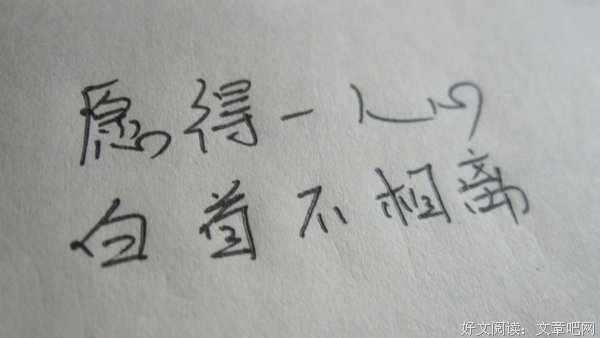 愿得一人心
白首不相离
好文阅读：文章吧网